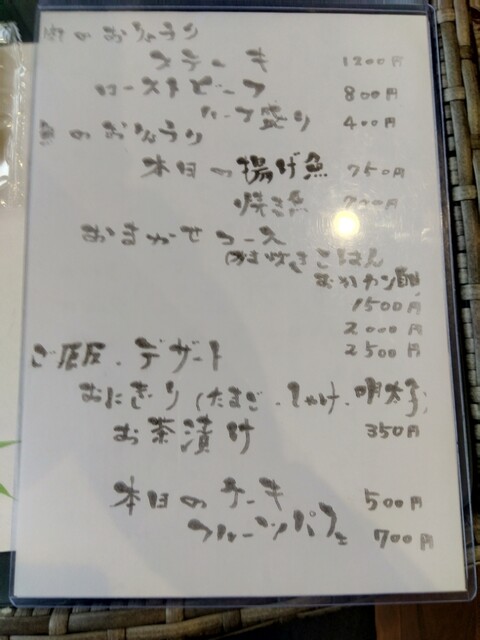 のおりょうり
ステーキ 1200円
ローストビーフ 800円
ハーフ盛り 400円
魚のおりょうり
本日の揚げ魚 750円
焼き魚 700円
おまかせコース
炊きごはん
おかわり
1500円
2000円
2500円
ご飯・デザート
おにぎり(たまご・しゃけ・明太子)
お茶漬け 350円
本日のケーキ 500円
フルーツパフェ 700円